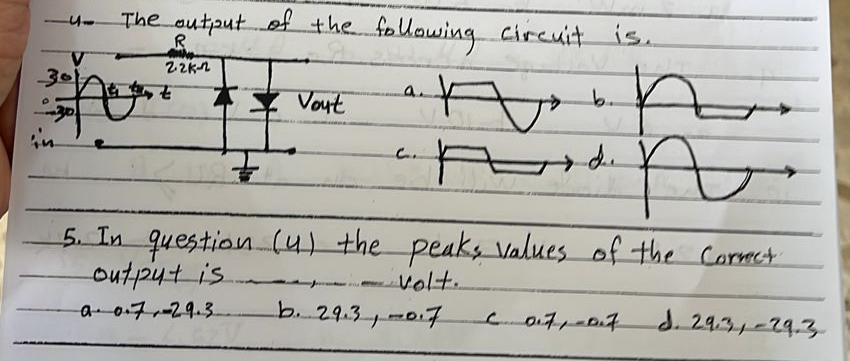 4- The output of the following circuit is.
R
2.2K-Ω
V
30
0
-30
t₁ t₂ t
in
Vout
a.
b.
c.
d.
5. In question (4) the peaks values of the correct
output is ---, --- volt.
a. 0.7, -29.3 b. 29.3, -0.7 c 0.7, -0.7 d. 29.3, -29.3